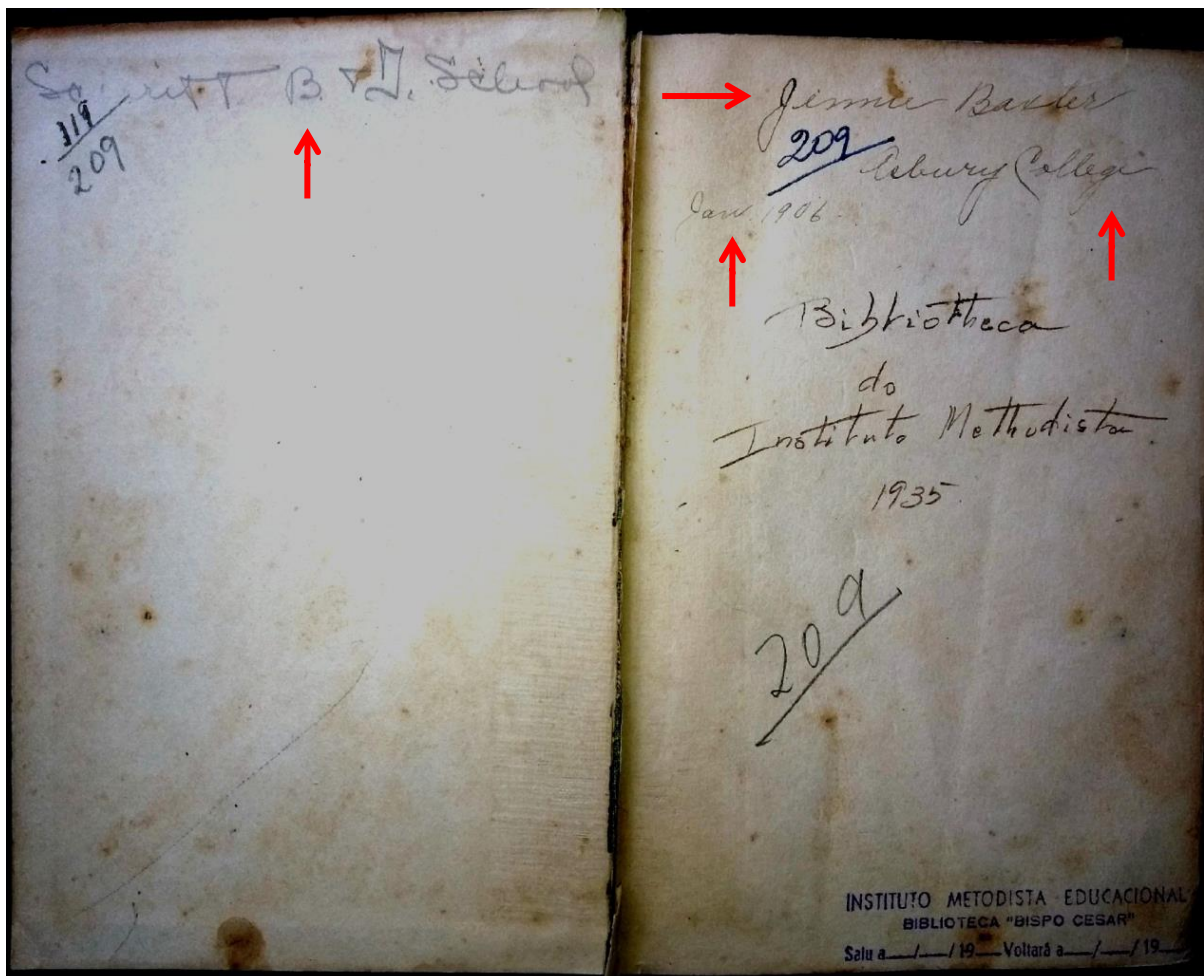 Scarritt B. + T. School
119
209
Jennie Baxter
209
Asbury College
Jan. 1906.
Bibliotheca
do
Instituto Methodista
1935
209
INSTITUTO METODISTA EDUCACIONAL
BIBLIOTECA "BISPO CESAR"
Saiu a___/___/19___Voltará a___/___/19___